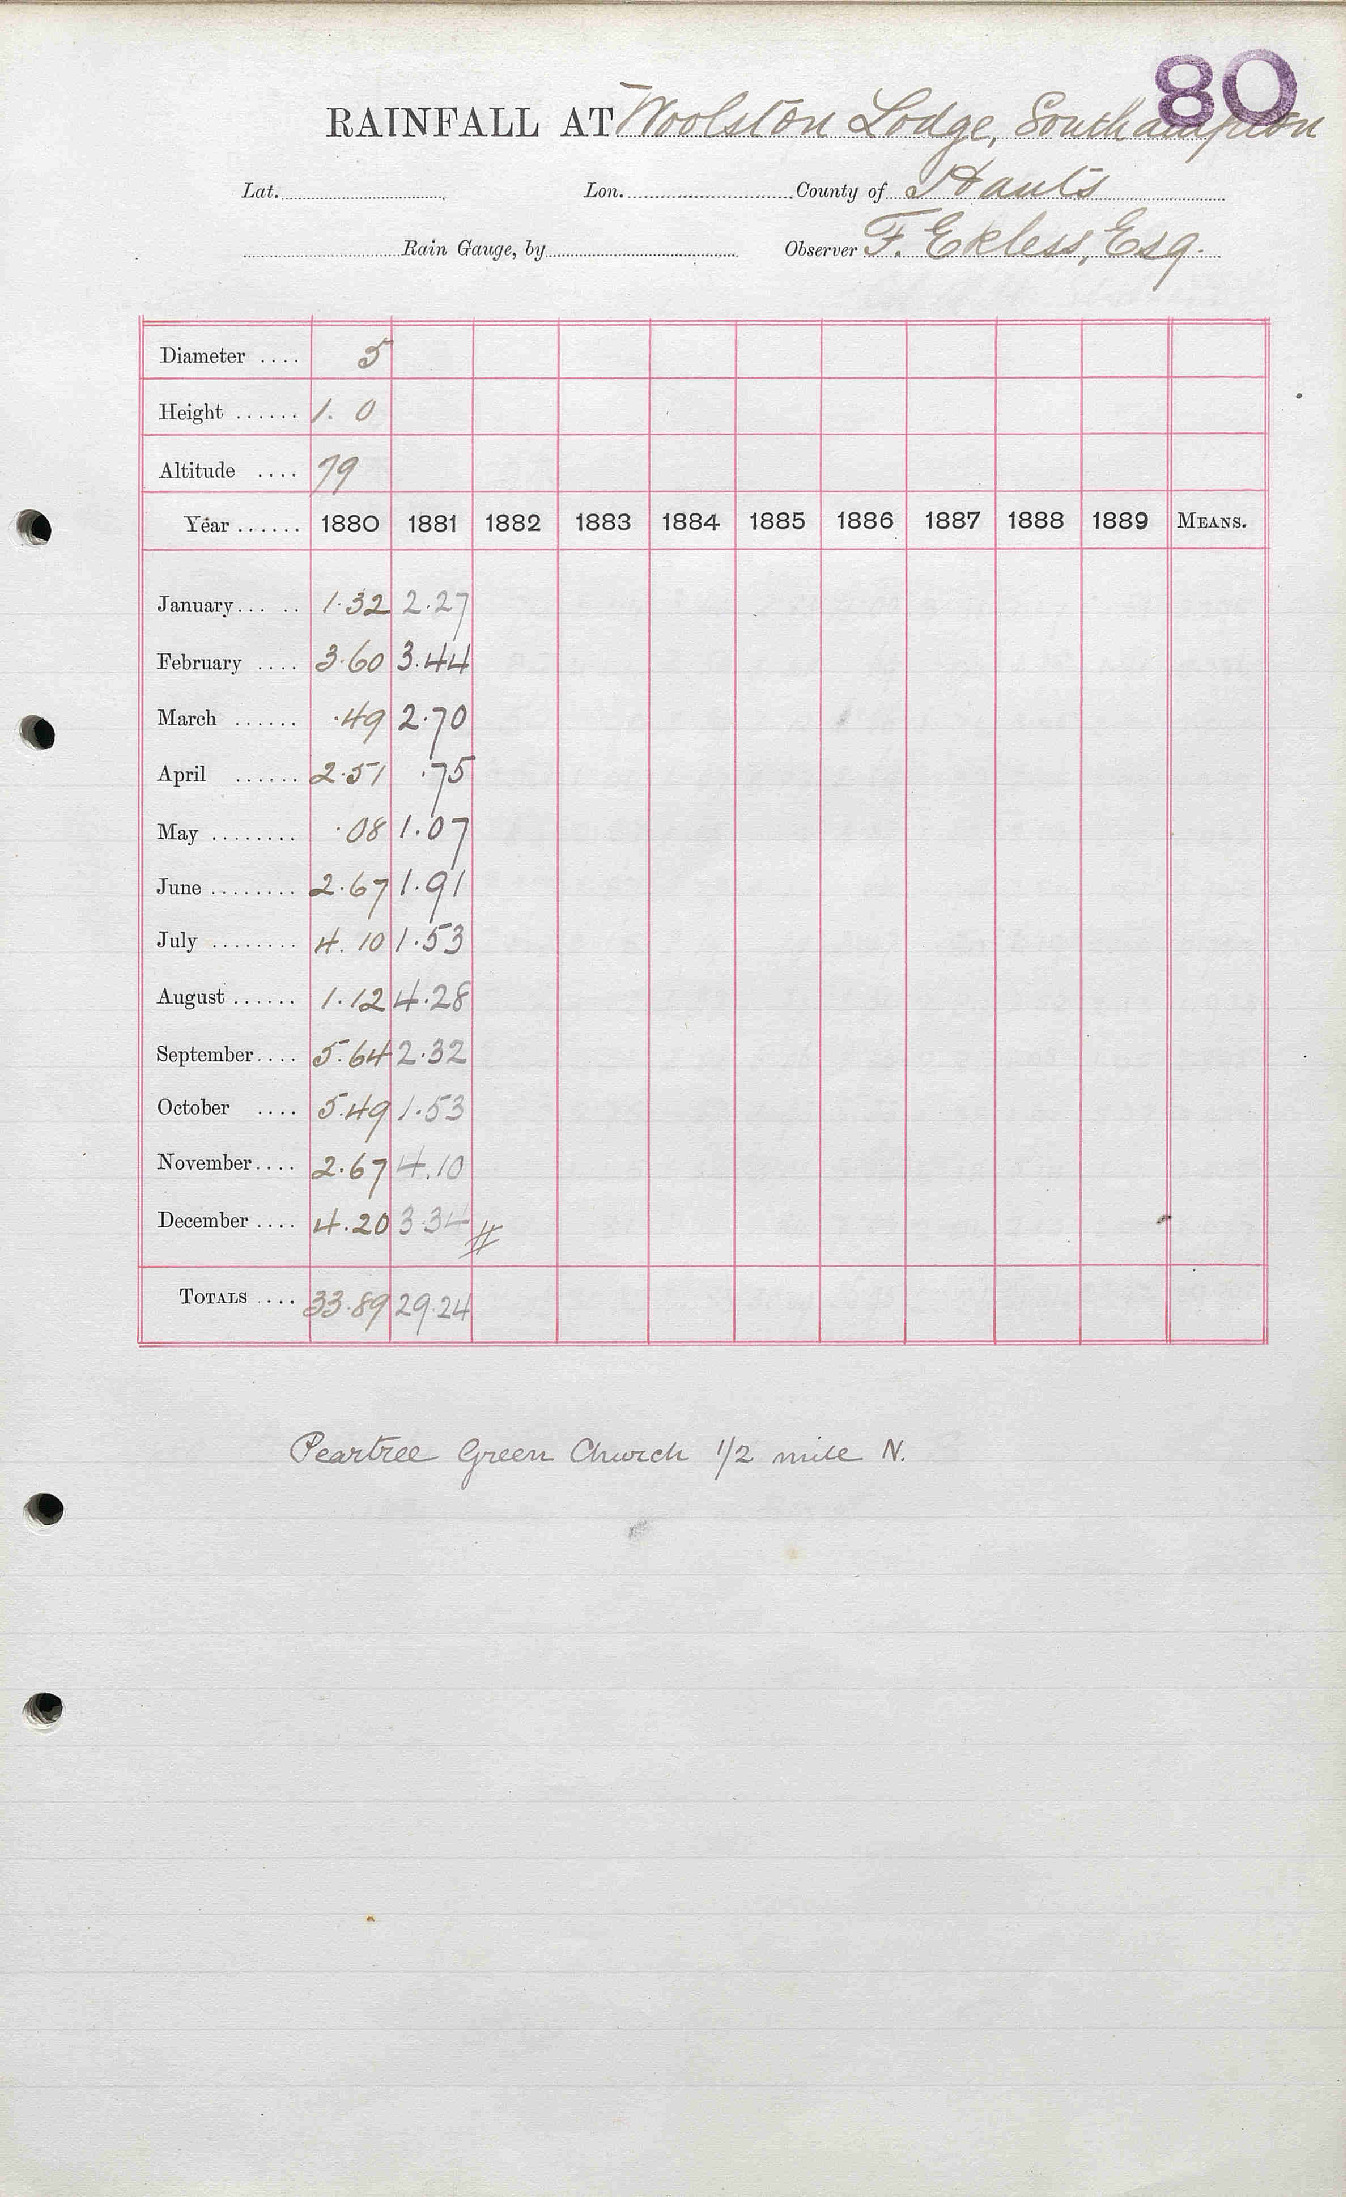 80
RAINFALL AT Woolston Lodge, Southampton
Lat. Lon. County of Hants
Rain Gauge, by Observer F. Ekless, Esq.
Diameter .... 5
Height ...... 1. 0
Altitude .... 79
Year ...... 1880 1881 1882 1883 1884 1885 1886 1887 1888 1889 MEANS.
January... .. 1.32 2.27
February .... 3.60 3.44
March ...... .49 2.70
April ...... 2.51 .75
May ........ .08 1.07
June ........ 2.67 1.91
July ........ 4.10 1.53
August ...... 1.12 4.28
September.... 5.64 2.32
October .... 5.49 1.53
November.... 2.67 4.10
December .... 4.20 3.34 #
TOTALS .... 33.89 29.24
Peartree Green Church 1/2 mile N.